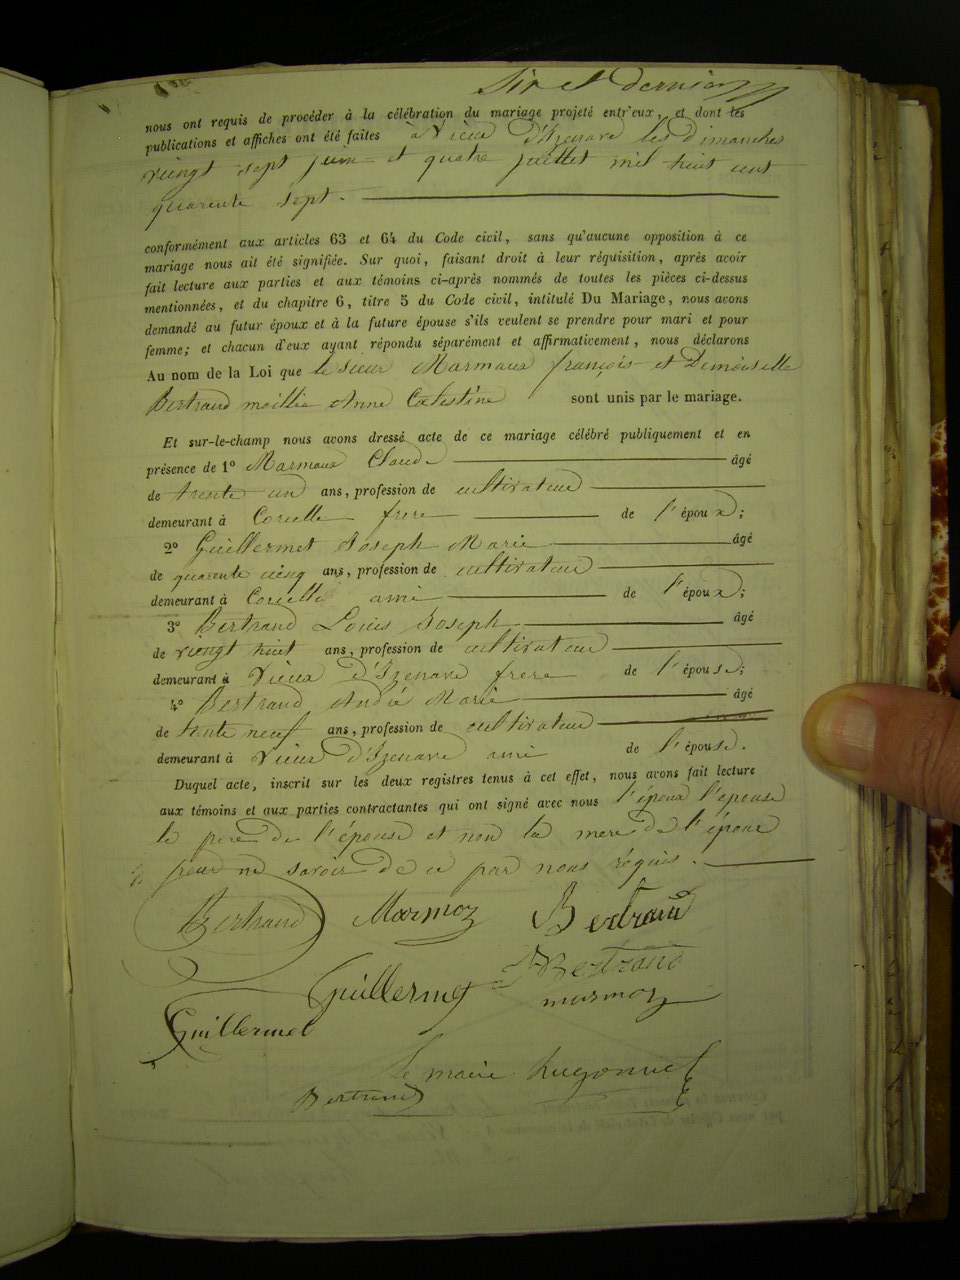 Six et dernier
nous ont requis de procéder à la célébration du mariage projeté entr'eux, et dont les
publications et affiches ont été faites à Vieu d'Izenave les Dimanches
vieingt sept juin et quatre juillet mil huit cent
quarente sept.
conformément aux articles 63 et 64 du Code civil, sans qu'aucune opposition à ce
mariage nous ait été signifiée. Sur quoi, faisant droit à leur réquisition, après avoir
fait lecture aux parties et aux témoins ci-après nommés de toutes les pièces ci-dessus
mentionnées, et du chapitre 6, titre 5 du Code civil, intitulé Du Mariage, nous avons
demandé au futur époux et à la future épouse s'ils veulent se prendre pour mari et pour
femme; et chacun d'eux ayant répondu séparément et affirmativement, nous déclarons
Au nom de la Loi que le sieur Marmoux françois et Demoiselle
Bertrand moillie Anne Célestine sont unis par le mariage.
Et sur-le-champ nous avons dressé acte de ce mariage célébré publiquement et en
présence de 1º Marmoux Claude âgé
de trente un ans, profession de cultivateur
demeurant à Corcelle frere de l'époux;
2º Guillermet Joseph Marie âgé
de quarente cienq ans, profession de cultivateur
demeurant à Corcelle ami de l'époux;
3º Bertrand Louis Joseph âgé
de vieingt huit ans, profession de cultivateur
demeurant à Vieux d'Izenave frere de l'épouse;
4º Bertrand André Marie âgé
de trente neuf ans, profession de cultivateur
demeurant à Vieux d'Izenave ami de l'épouse.
Duquel acte, inscrit sur les deux registres tenus à cet effet, nous avons fait lecture
aux témoins et aux parties contractantes qui ont signé avec nous l'époux l'épouse
le pere de l'épouse et non la mere de l'époux
pour ne savoir de ce par nous réquis.
Bertrand Marmoz Bertrand
Guillermet Bertrand
marmoz
Guillermet
le maire hugonnet
Bertrand